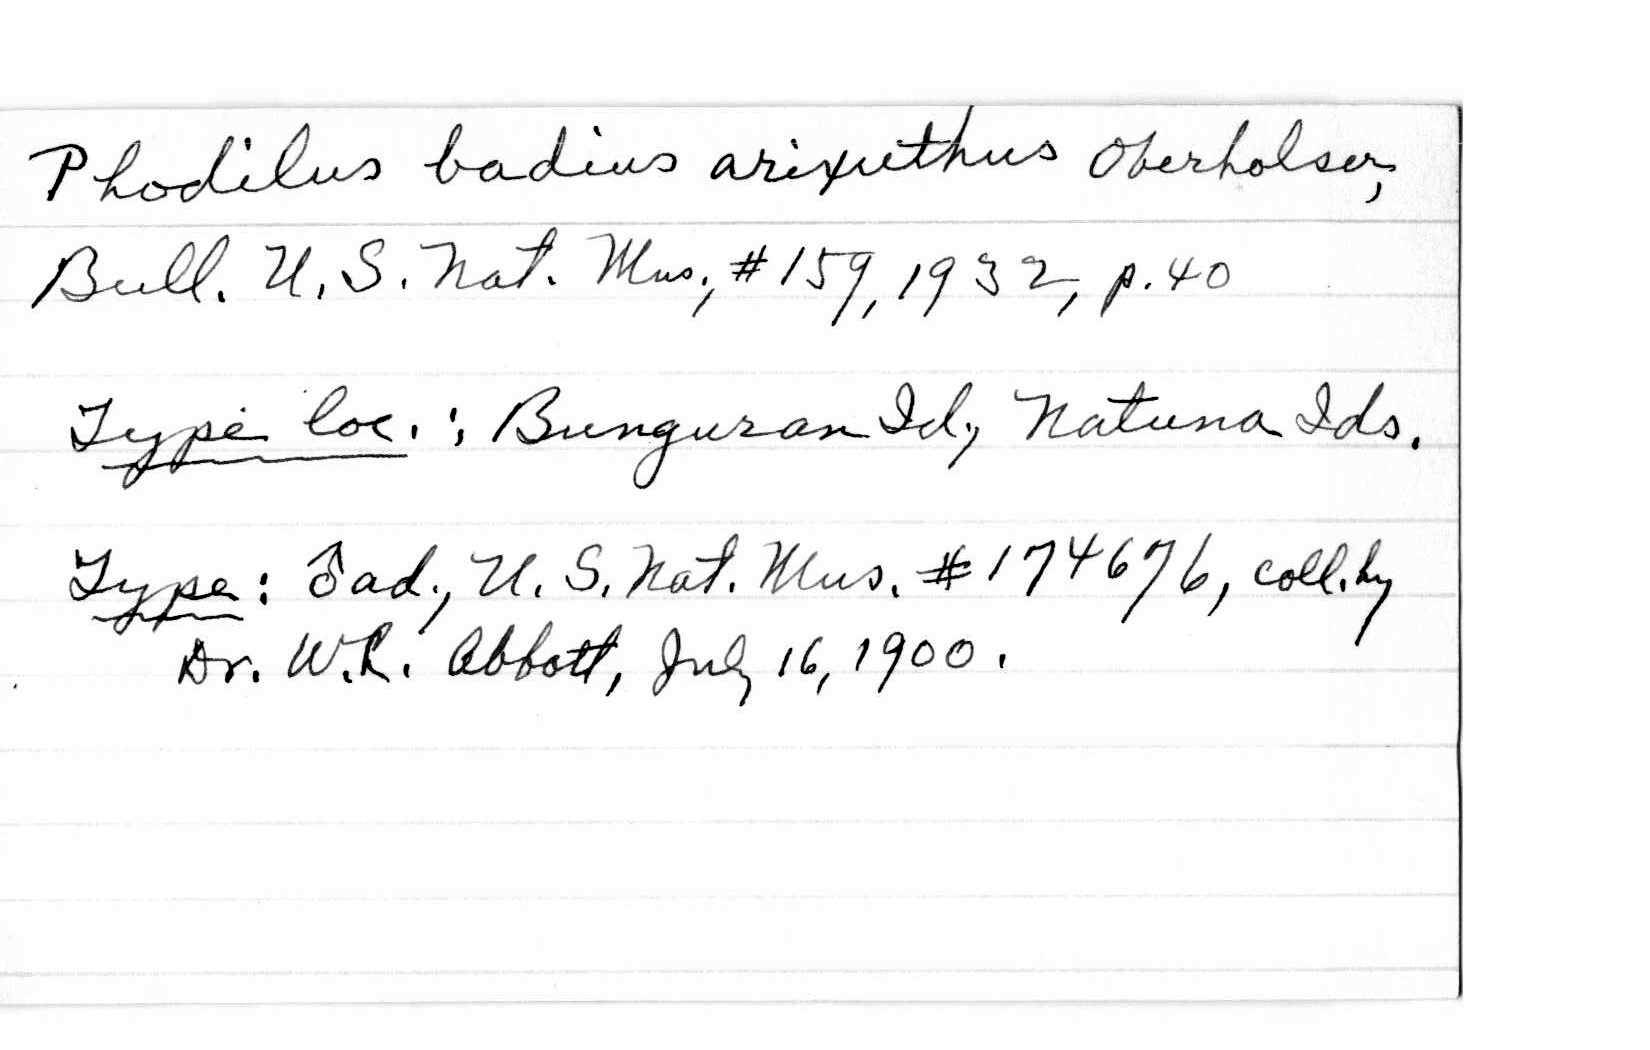 Phodilus badius arixuthus Oberholser,
Bull. U.S. Nat. Mus., #159, 1932, p.40
Type loc.: Bunguran Id., Natuna Ids.
Type: ♂ ad., U.S. Nat. Mus. #174676, coll. by
Dr. W.L. Abbott, July 16, 1900.